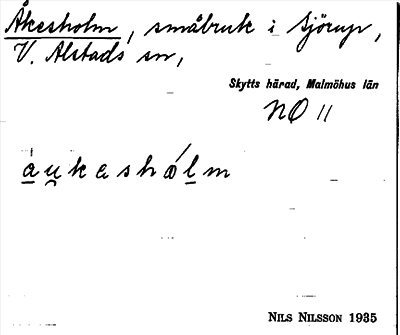 Åkesholm, småbruk i Sjörup,
V. Alstads sn,
Skytts härad, Malmöhus län
NO 11
au̯kashólm
NILS NILSSON 1935